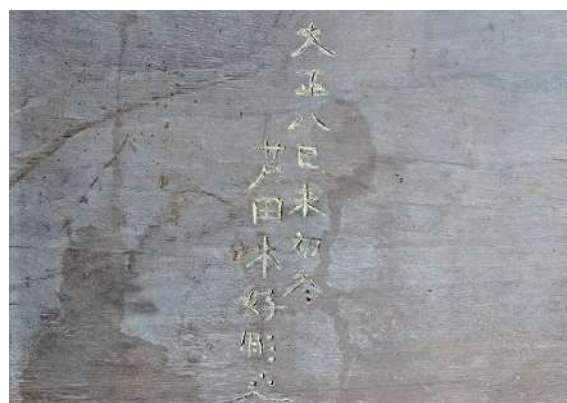 大正八己未初冬
芦田木好彫之